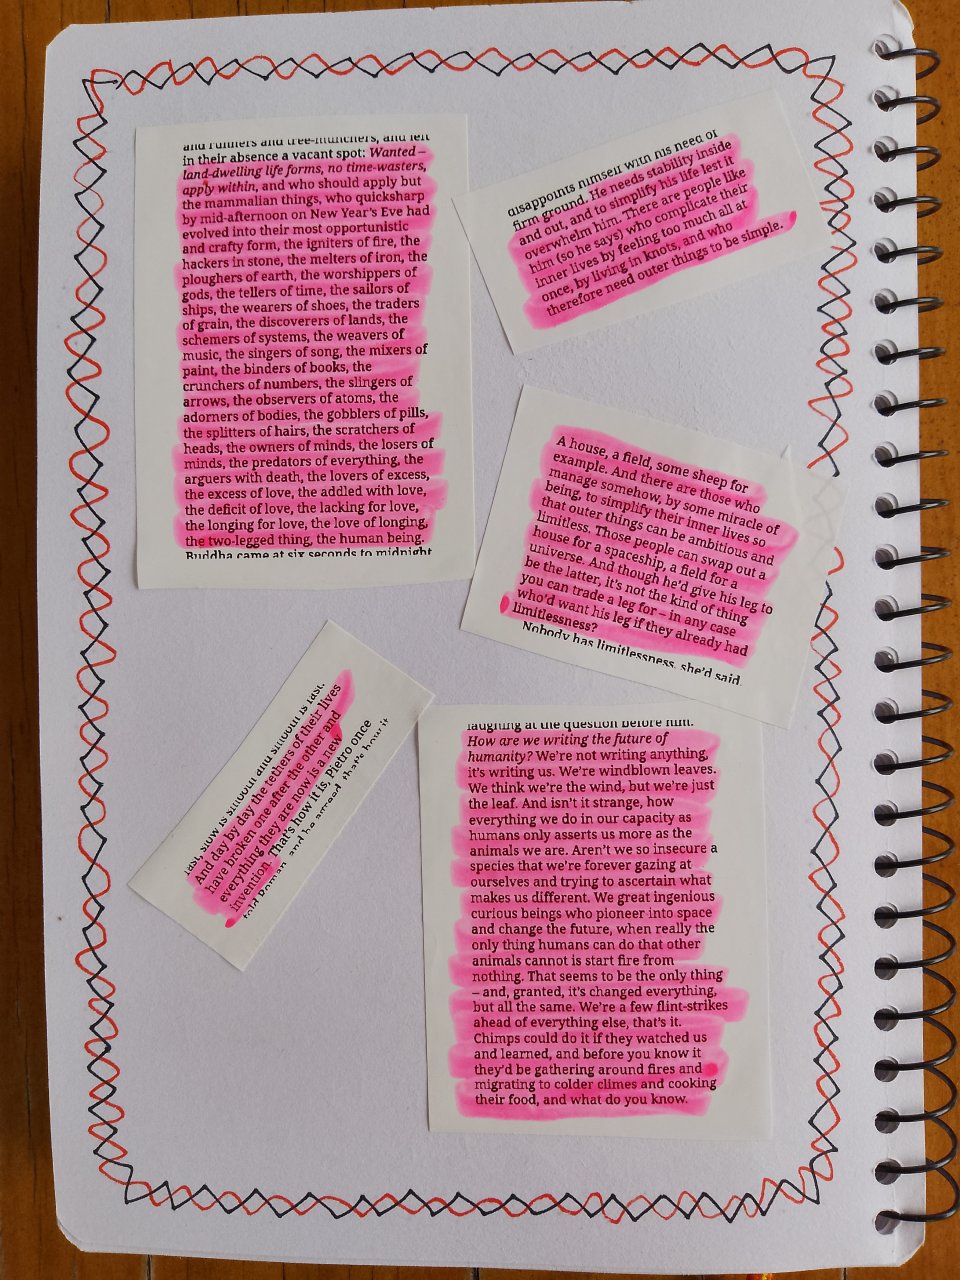 and runners and tree-munchers, and left
in their absence a vacant spot: Wanted –
land-dwelling life forms, no time-wasters,
apply within, and who should apply but
the mammalian things, who quicksharp
by mid-afternoon on New Year's Eve had
evolved into their most opportunistic
and crafty form, the igniters of fire, the
hackers in stone, the melters of iron, the
ploughers of earth, the worshippers of
gods, the tellers of time, the sailors of
ships, the wearers of shoes, the traders
of grain, the discoverers of lands, the
schemers of systems, the weavers of
music, the singers of song, the mixers of
paint, the binders of books, the
crunchers of numbers, the slingers of
arrows, the observers of atoms, the
adorners of bodies, the gobblers of pills,
the splitters of hairs, the scratchers of
heads, the owners of minds, the losers of
minds, the predators of everything, the
arguers with death, the lovers of excess,
the excess of love, the addled with love,
the deficit of love, the lacking for love,
the longing for love, the love of longing,
the two-legged thing, the human being.
Buddha came at six seconds to midnight
disappoints himself with his need of
firm ground. He needs stability inside
and out, and to simplify his life lest it
overwhelm him. There are people like
him (so he says) who complicate their
inner lives by feeling too much all at
once, by living in knots, and who
therefore need outer things to be simple.
A house, a field, some sheep for
example. And there are those who
manage somehow, by some miracle of
being, to simplify their inner lives so
that outer things can be ambitious and
limitless. Those people can swap out a
house for a spaceship, a field for a
universe. And though he'd give his leg to
be the latter, it's not the kind of thing
you can trade a leg for – in any case
who'd want his leg if they already had
limitlessness?
Nobody has limitlessness, she'd said.
fast, slow is smooth and smooth is fast.
And day by day the tethers of their lives
have broken one after the other and
everything they are now is a new
invention. That's how it is, Pietro once
told Roman, and he agreed that's how it
laughing at the question before him.
How are we writing the future of
humanity? We're not writing anything,
it's writing us. We're windblown leaves.
We think we're the wind, but we're just
the leaf. And isn't it strange, how
everything we do in our capacity as
humans only asserts us more as the
animals we are. Aren't we so insecure a
species that we're forever gazing at
ourselves and trying to ascertain what
makes us different. We great ingenious
curious beings who pioneer into space
and change the future, when really the
only thing humans can do that other
animals cannot is start fire from
nothing. That seems to be the only thing
– and, granted, it's changed everything,
but all the same. We're a few flint-strikes
ahead of everything else, that's it.
Chimps could do it if they watched us
and learned, and before you know it
they'd be gathering around fires and
migrating to colder climes and cooking
their food, and what do you know.